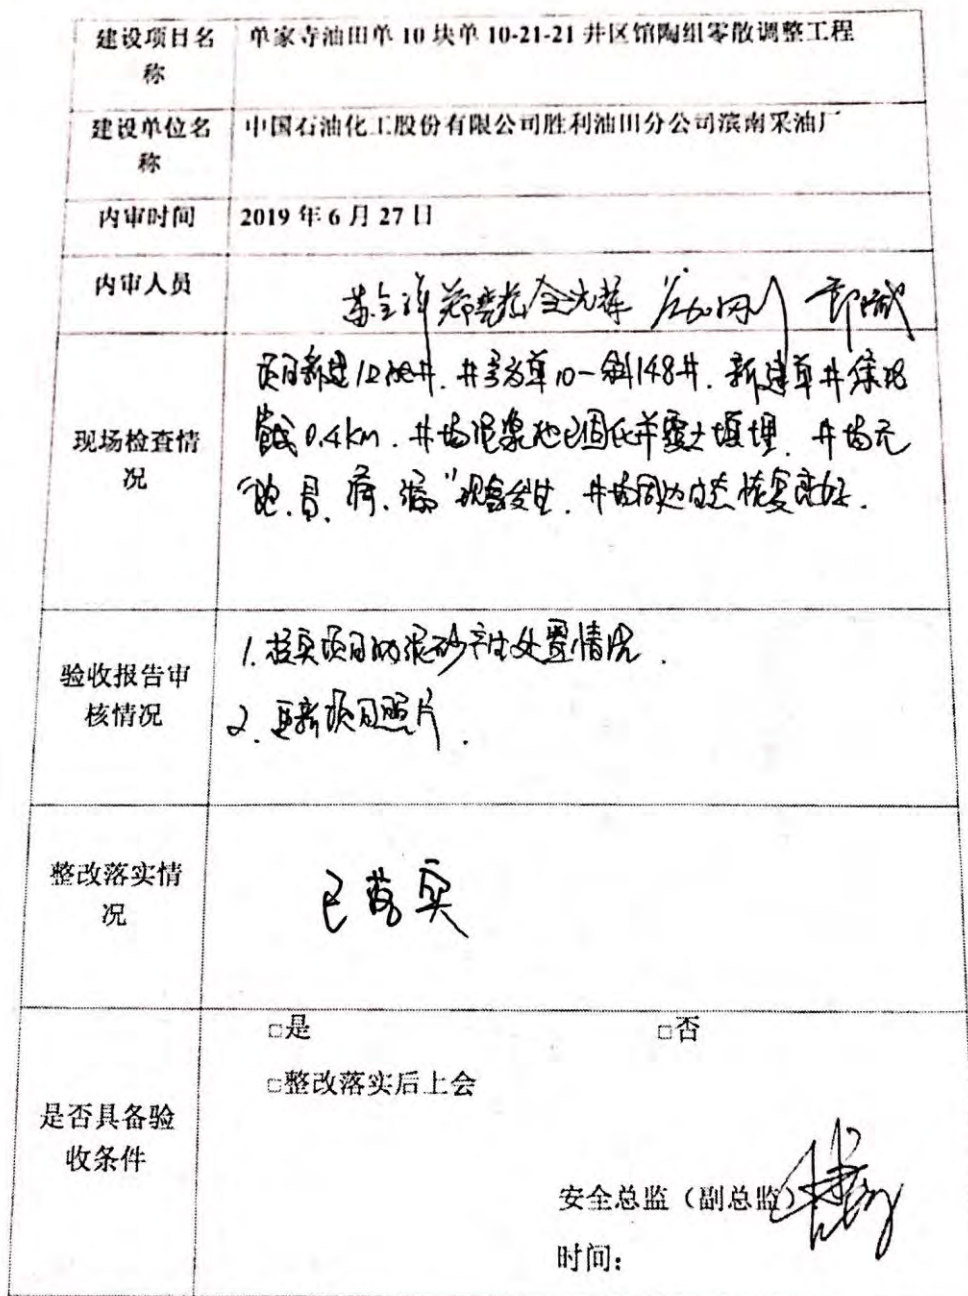 建设项目名
称
单家寺油田单 10 块单 10-21-21 井区馆陶组零散调整工程
建设单位名
称
中国石油化工股份有限公司胜利油田分公司滨南采油厂
内审时间
2019 年 6 月 27 日
内审人员
现场检查情
况
项目新建1口油井. 井号为单10-斜148井. 新建单井集油
管线0.4km. 井场泥浆池已固化并覆土填埋. 井场无
"跑.冒.滴.漏"现象发生. 井场周边生态恢复良好.
验收报告审
核情况
1. 核实项目油泥砂产生处置情况.
2. 更新项目照片.
整改落实情
况
已落实
是否具备验
收条件
□是
□否
□整改落实后上会
安全总监（副总监）
时间：